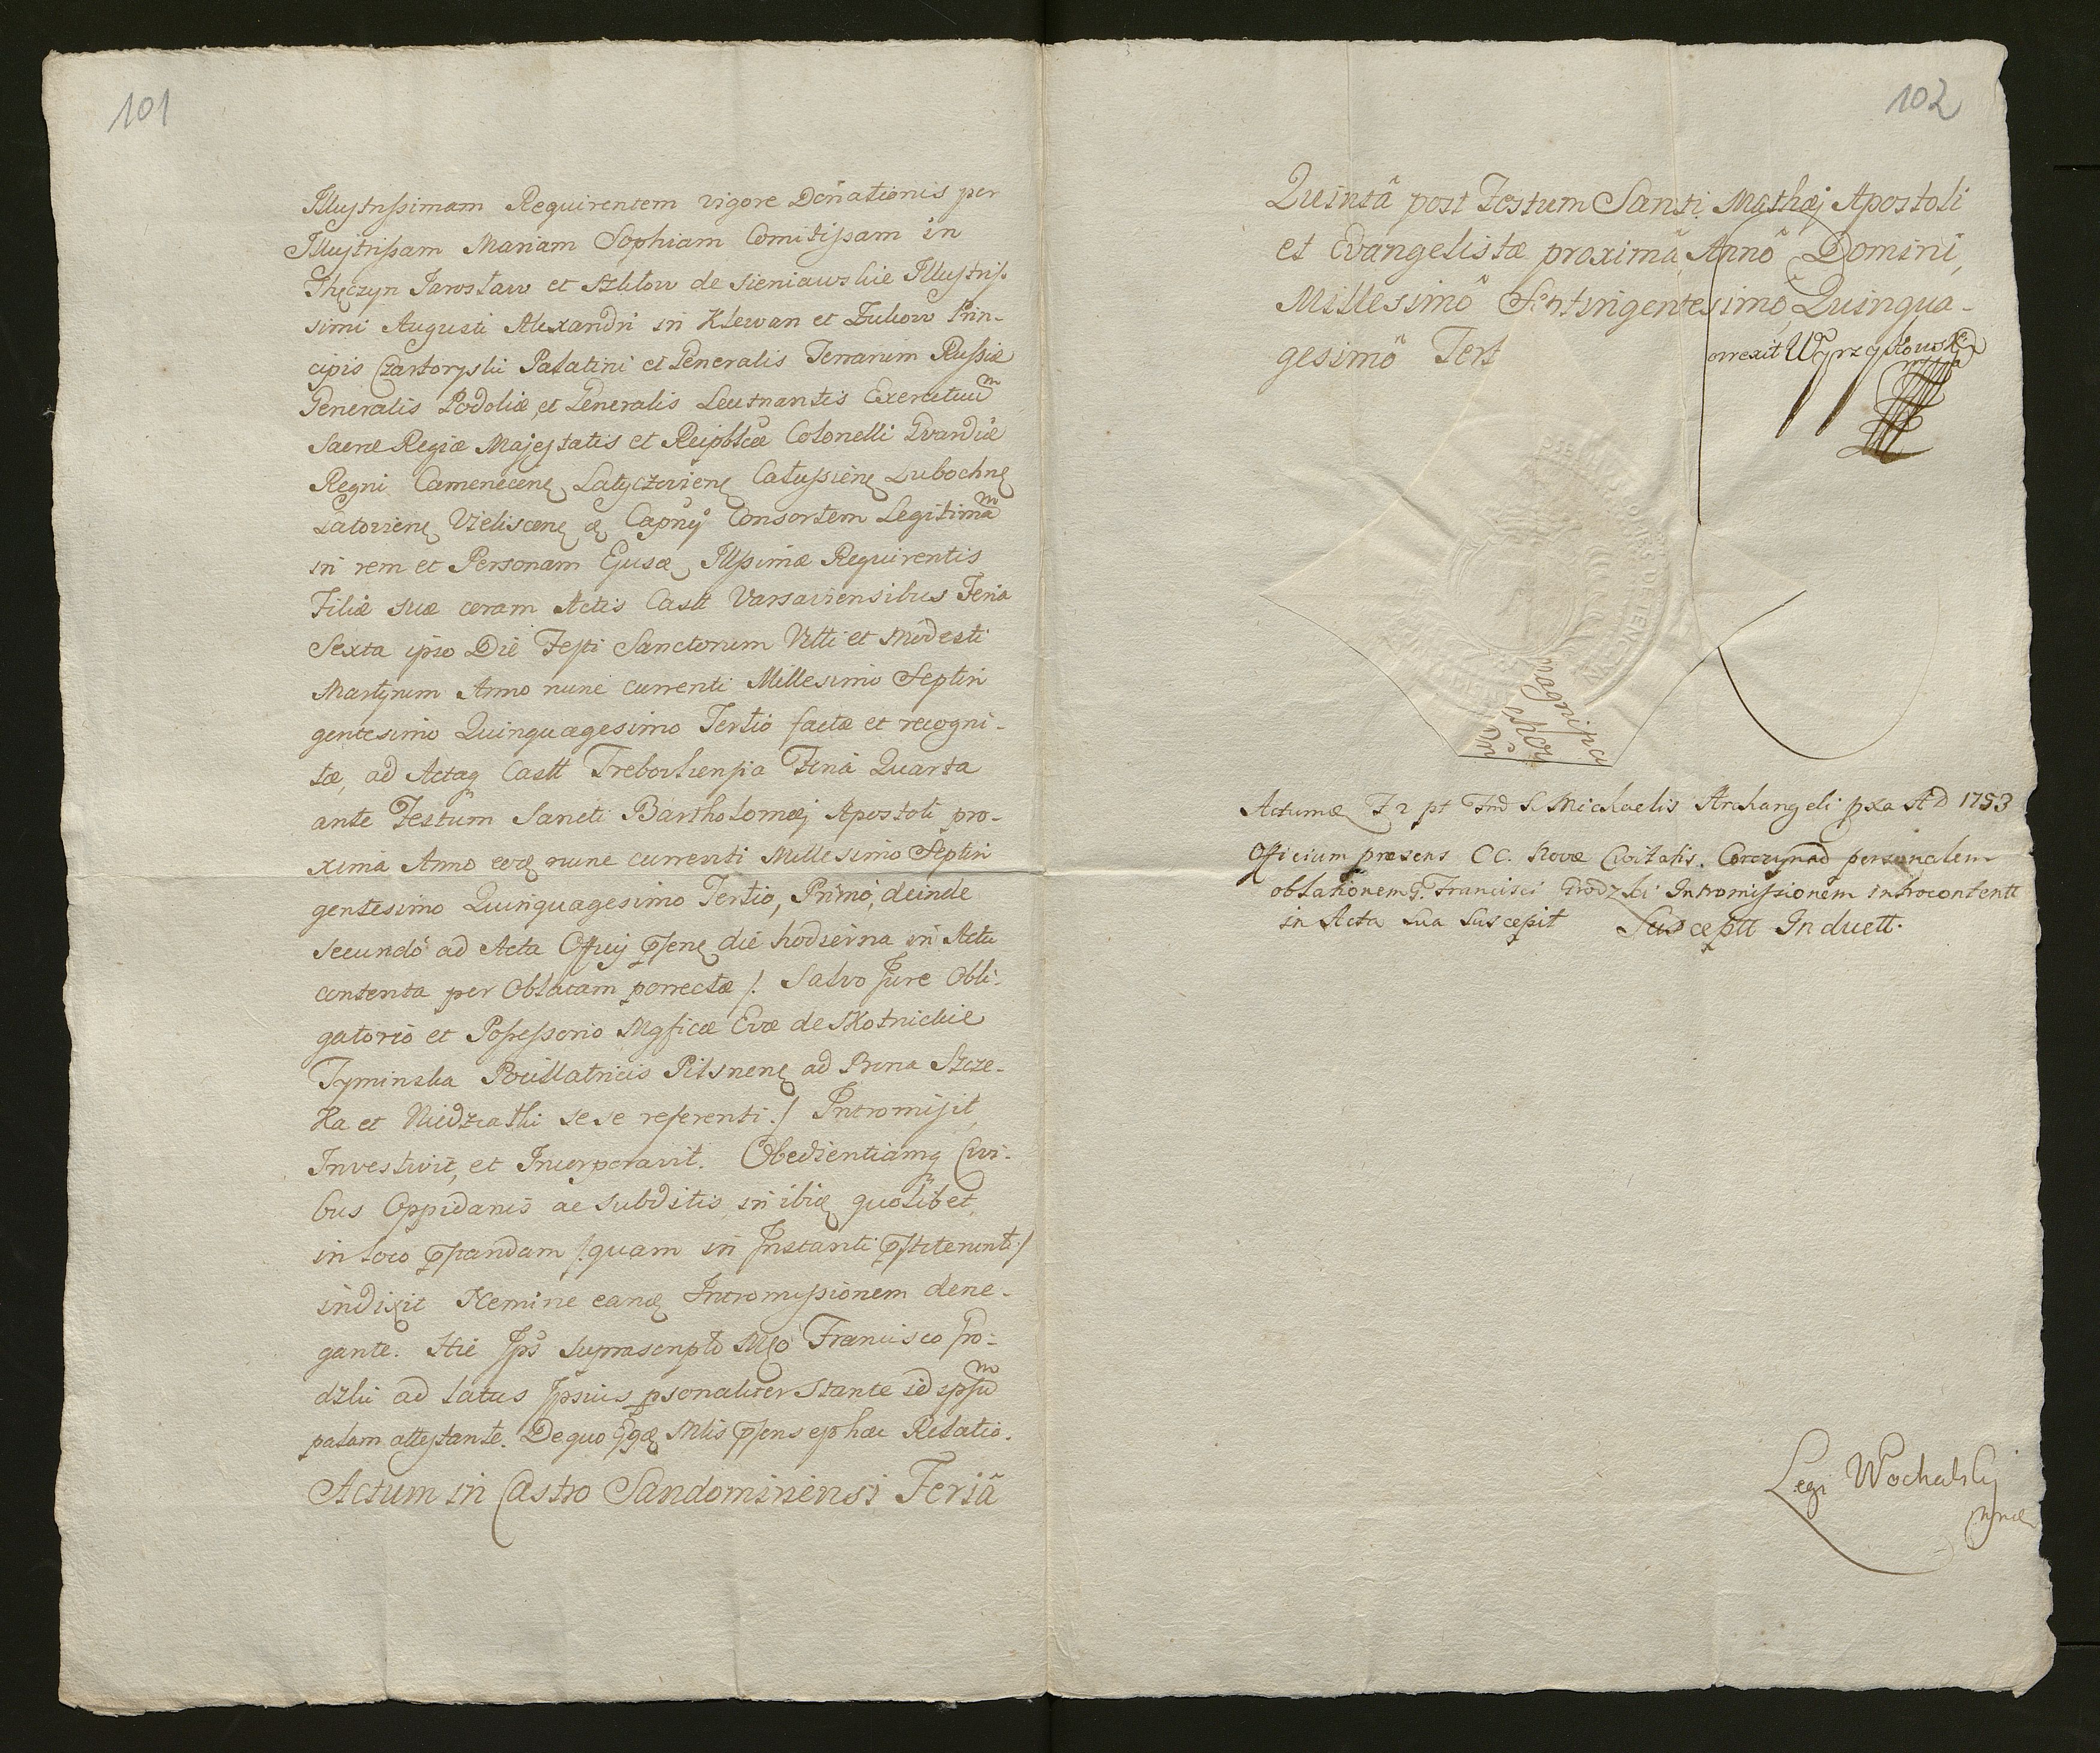 101
Illustrissimam Requirentem vigore Donationis per
Illustrissam Mariam Sophiam Comitissam in
Thęczyn Jarosław et Szkłow de Sieniawskie Illustris
simi Augusti Alexandri in Klewan et Zukow Prin-
cipis Czartoryski Palatini et Generalis Terrarum Russiæ
Generalis Podoliæ et Generalis Leutnantis Exercituum
Sacræ Regiæ Majestatis et Reipblcæ Colonelli Gvardiæ
Regni Camenecen Latyczovien Calussien Lubochn
Latovien Vieliscen & Capnej Consortem Legitimam
in rem et Personam Ejusd Illssimæ Requirentis
Filiæ suæ coram Actis Castt Varsaviensibus Feria
Sexta ipso Die Festi Sanctorum Viti et Modesti
Martyrum Anno nunc currenti Millesimo Septin
gentesimo Quinquagesimo Tertio factæ et recogni-
tæ, ad Actaq Castt Trebovliensia Feria Quarta
ante Festum Sancti Bartholomæj Apostoli pro-
xima Anno eod nunc currenti Millesimo Septin
gentesimo Quinquagesimo Tertio, Primo, deinde
secundo ad Acta Officij psen die hodierna in Actu
contenta per Oblatam porrectæ /. Salvo Jure Obli-
gatorio et Possessorio Mgficæ Evæ de Skotnickie
Tyminska Pocillatricis Pilsnen ad Bona Szcze-
ka et Niedziałki sese referenti ./ Intromisit,
Investivit, et Incorporavit. Obedientiamq Civi-
bus Oppidanis ac subditis, in ibid quolibet
in loco pstandam /. quam in Instanti pstiterunt ./
indixit Nemine eand Intromissionem dene-
gante. Hic Ips suprascripto Mgo Francisco Gro-
dzki ad latus Ipsius psonaliter stante id ipsum
palam attestante. De quo psens est hæc Relatio.
Actum in Castro Sandomiriensi Feriâ
102
Quintâ post Festum Santi Mathæj Apostoli
et Evangelistæ proximâ Annô Domini,
Millesimô Septingentesimo Quinqua-
gesimô Tert
orrexit Węrzykowski
Actum F 2 pt Fnd S. Michaelis Archangeli pxa A D 1753
Officium præsens CC. Novæ Civitatis. Corczyn ad personalem
oblationem G. Francisci Grodzki Intromissionem introcontentt
in Acta sua suscepit Susceptt Inductt.
Legi Wochalskj